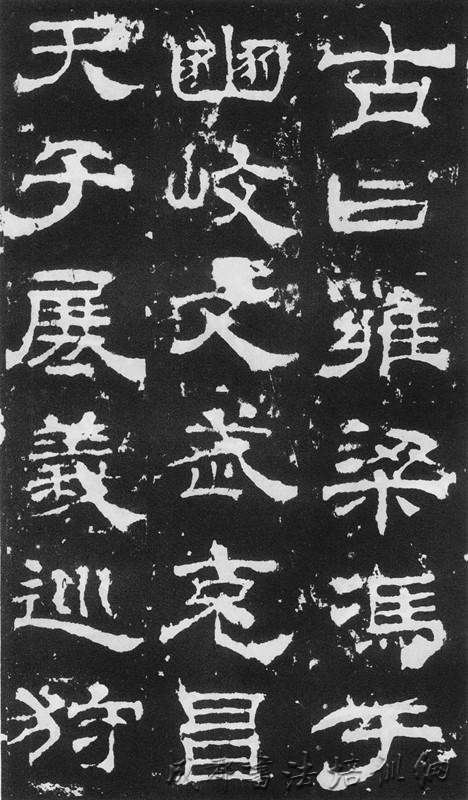 古曰雍梁馮于
豳岐文武克昌
天子展義巡狩
成都書法培訓網